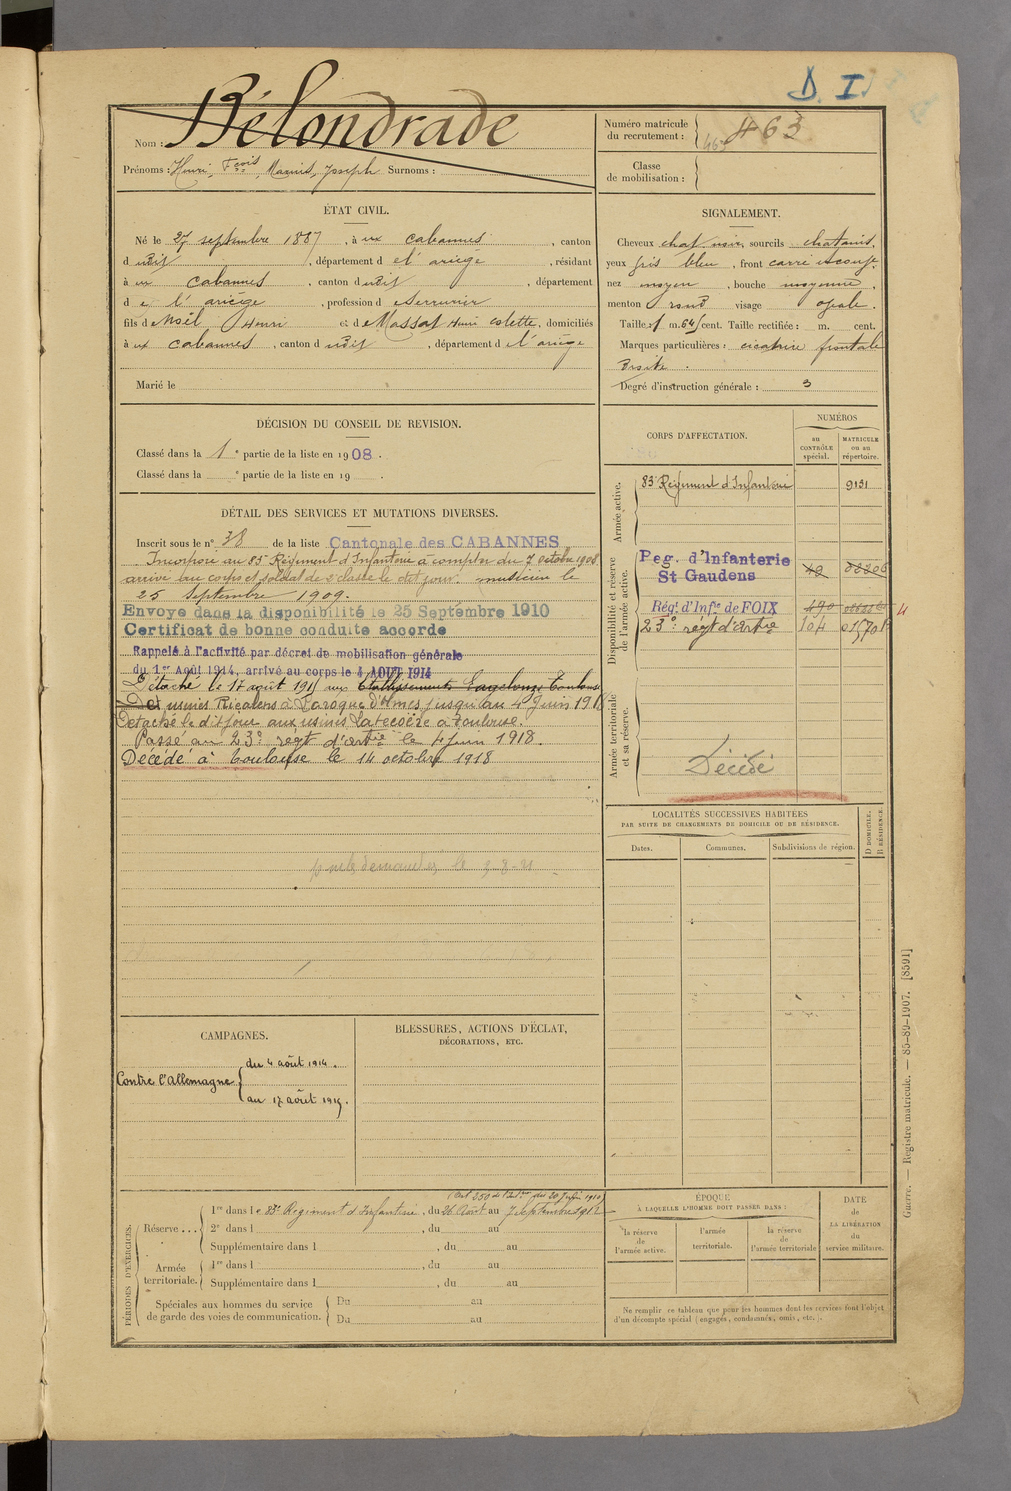 D. I
Nom : Bélondrade
Prénoms : Henri, Fçois, Joseph Surnoms :
Numéro matricule
du recrutement : 463
463
Classe
de mobilisation :
ÉTAT CIVIL.
Né le 27 septembre 1887, à ux cabannes, canton
d udit, département d e l'ariège, résidant
à ux cabannes, canton d udit, département
d e l'ariège, profession d e Serrurier
fils d e Noël Henri et d e Massat colette, domiciliés
à ux cabannes, canton d udit, département d e l'ariège
Marié le
SIGNALEMENT.
Cheveux chat noir, sourcils chatains,
yeux gris bleu, front carré
nez moyen, bouche moyenne,
menton rond visage ovale.
Taille : 1 m. 64 cent. Taille rectifiée : m. cent.
Marques particulières : cicatrice frontale
droite.
Degré d'instruction générale : 3
DÉCISION DU CONSEIL DE REVISION.
Classé dans la 1e partie de la liste en 1908.
Classé dans la e partie de la liste en 19 .
DÉTAIL DES SERVICES ET MUTATIONS DIVERSES.
Inscrit sous le n° 38 de la liste Cantonale des CABANNES
Incorporé au 83e Régiment d'Infanterie à compter du 7 octobre 1908
arrivé au corps et soldat de 2e classe le dit jour. musicien le
25 Septembre 1909.
Envoyé dans la disponibilité le 25 Septembre 1910
Certificat de bonne conduite accordé
Rappelé à l'activité par décret de mobilisation générale
du 1er Août 1914, arrivé au corps le 4 AOUT 1914
Détaché le 17 août 1915 aux Etablissements Toulouse
usines Ricalens à Laroque d'Olmes jusqu'au 4 Juin 1918
Détaché le dit jour aux usines Latécoère à Toulouse.
Passé au 23e régt d'artie le 4 juin 1918.
Décédé à Toulouse le 14 octobre 1918
le 3-8-21
CORPS D'AFFECTATION.
NUMÉROS
au
CONTRÔLE
spécial.
MATRICULE
ou au
répertoire.
Armée active.
83e Régiment d'Infanterie 9131
Disponibilité et réserve
de l'armée active.
Reg. d'Infanterie
St Gaudens
Rég. d'Infie de FOIX 490
23e régt d'artie 104
Armée territoriale
et sa réserve.
Décédé
LOCALITÉS SUCCESSIVES HABITÉES
PAR SUITE DE CHANGEMENTS DE DOMICILE OU DE RÉSIDENCE.
Dates.
Communes.
Subdivisions de région.
D DOMICILE.
R RÉSIDENCE.
CAMPAGNES.
Contre l'Allemagne
du 4 août 1914.
au 17 août 1915.
BLESSURES, ACTIONS D'ÉCLAT,
DÉCORATIONS, ETC.
PÉRIODES D'EXERCICES.
(Art 250 de l'Inson du 20 juin 1910)
Réserve ...
1re dans l e 83e Régiment d'Infanterie, du 26 Août au 7 Septembre 1912
2e dans l , du au
Supplémentaire dans l , du au
Armée
territoriale.
1re dans l , du au
Supplémentaire dans l , du au
Spéciales aux hommes du service
de garde des voies de communication.
Du au
Du au
ÉPOQUE
À LAQUELLE L'HOMME DOIT PASSER DANS :
la réserve
de
l'armée active.
l'armée
territoriale.
la réserve
de
l'armée territoriale
DATE
de
LA LIBÉRATION
du
service militaire.
Ne remplir ce tableau que pour les hommes dont les services font l'objet
d'un décompte spécial (engagés, condamnés, omis, etc.).
Guerre. — Registre matricule. — 85-89-1907. [8591]